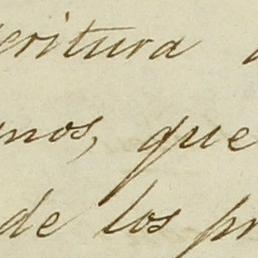 critura a
nos, que
de los pr